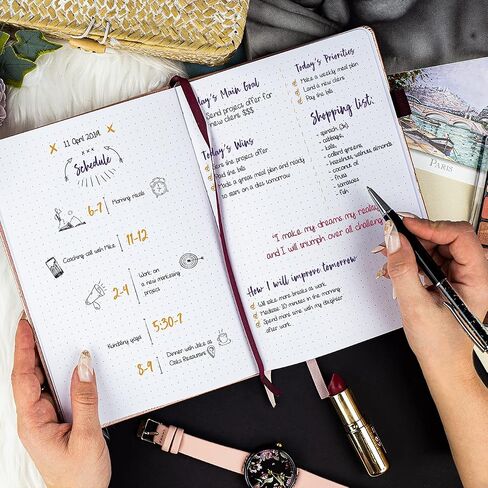 11 April 2019
x x x
Schedule
6-7
Morning rituals
Coaching call with Mike
11-12
2-4
Work on
a new marketing
project
5:30-7
Kundaliny yoga
8-9
Dinner with date at
Oaks Restaurant
Today's Main Goal
Send project offer for
new client $$$
Today's Wins
Sent the project offer
Paid the bills
Made a great meal plan and ready
to start on a diet tomorrow
Today's Priorities
Make a weekly meal plan
Land a new client
Pay the bills
Shopping list:
- spinach (2x)
- cabbage
- kale
- collard greens
- hazelnut, walnut, almonds
- coconut oil
- fruits
- tomatoes
- fish
"I make my dreams my reality
and I will triumph over all challenges
How I will improve tomorrow
Will take more breaks at work
Meditate 20 minutes in the morning
Spend more time with my daughter
after work
PARIS